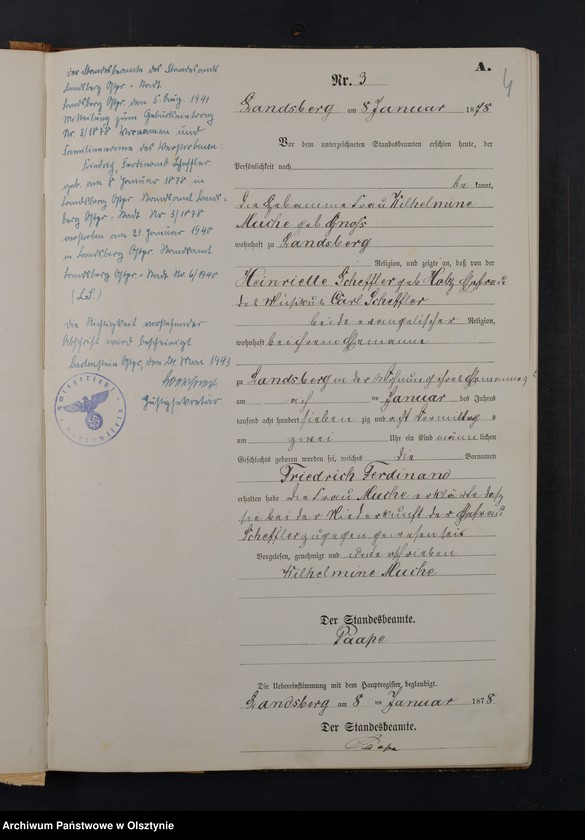 Der Standesbeamte des Standesamts
Landsberg Ostpr. - Stadt
Landsberg Ostpr. den 5. Aug. 1941
Mitteilung zum Geburtseintrag
Nr. 3/1878 Vornamen und
Familienname des Verstorbenen:
Friedrich, Ferdinand Scheffler
geb. am 8. Januar 1878 in
Landsberg Ostpr. Standesamt Lands-
berg Ostpr. Stadt Nr. 3/1878
verstorben am 21. Januar 1940
in Landsberg Ostpr. Standesamt
Landsberg Ostpr. - Stadt Nr. 6/1940
(L.S.)
Die Richtigkeit vorstehender
Abschrift wird bescheinigt
Bartenstein Ostpr., den 24. Mai 1943
Justizsekretär
Amtsgericht
A.
4
Nr. 3
Landsberg am 8 Januar 1878
Vor dem unterzeichneten Standesbeamten erschien heute, der
Persönlichkeit nach
be kannt,
die Hebamme Frau Wilhelmine
Muche geb
wohnhaft zu Landsberg
Religion, und zeigte an, daß von der
Henriette Scheffler geb Holz Ehefrau
des Musikus Carl Scheffler
beide evangelischer Religion,
wohnhaft bei ihrem Ehemanne
zu Landsberg in der Wohnung ihres Ehemannes
am acht ten Januar des Jahres
tausend acht hundert sieben zig und acht Vormittag s
um zwei Uhr ein Kind männ lichen
Geschlechts geboren worden sei, welches die Vornamen
Friedrich Ferdinand
erhalten habe die Frau Muche erklärte daß
sie bei der Niederkunft der Ehefrau
Scheffler zugegen gewesen sei
Vorgelesen, genehmigt und unterschrieben
Wilhelmine Muche
Der Standesbeamte.
Paape
Die Uebereinstimmung mit dem Hauptregister beglaubigt.
Landsberg am 8 ten Januar 1878
Der Standesbeamte.
Paape
Archiwum Państwowe w Olsztynie